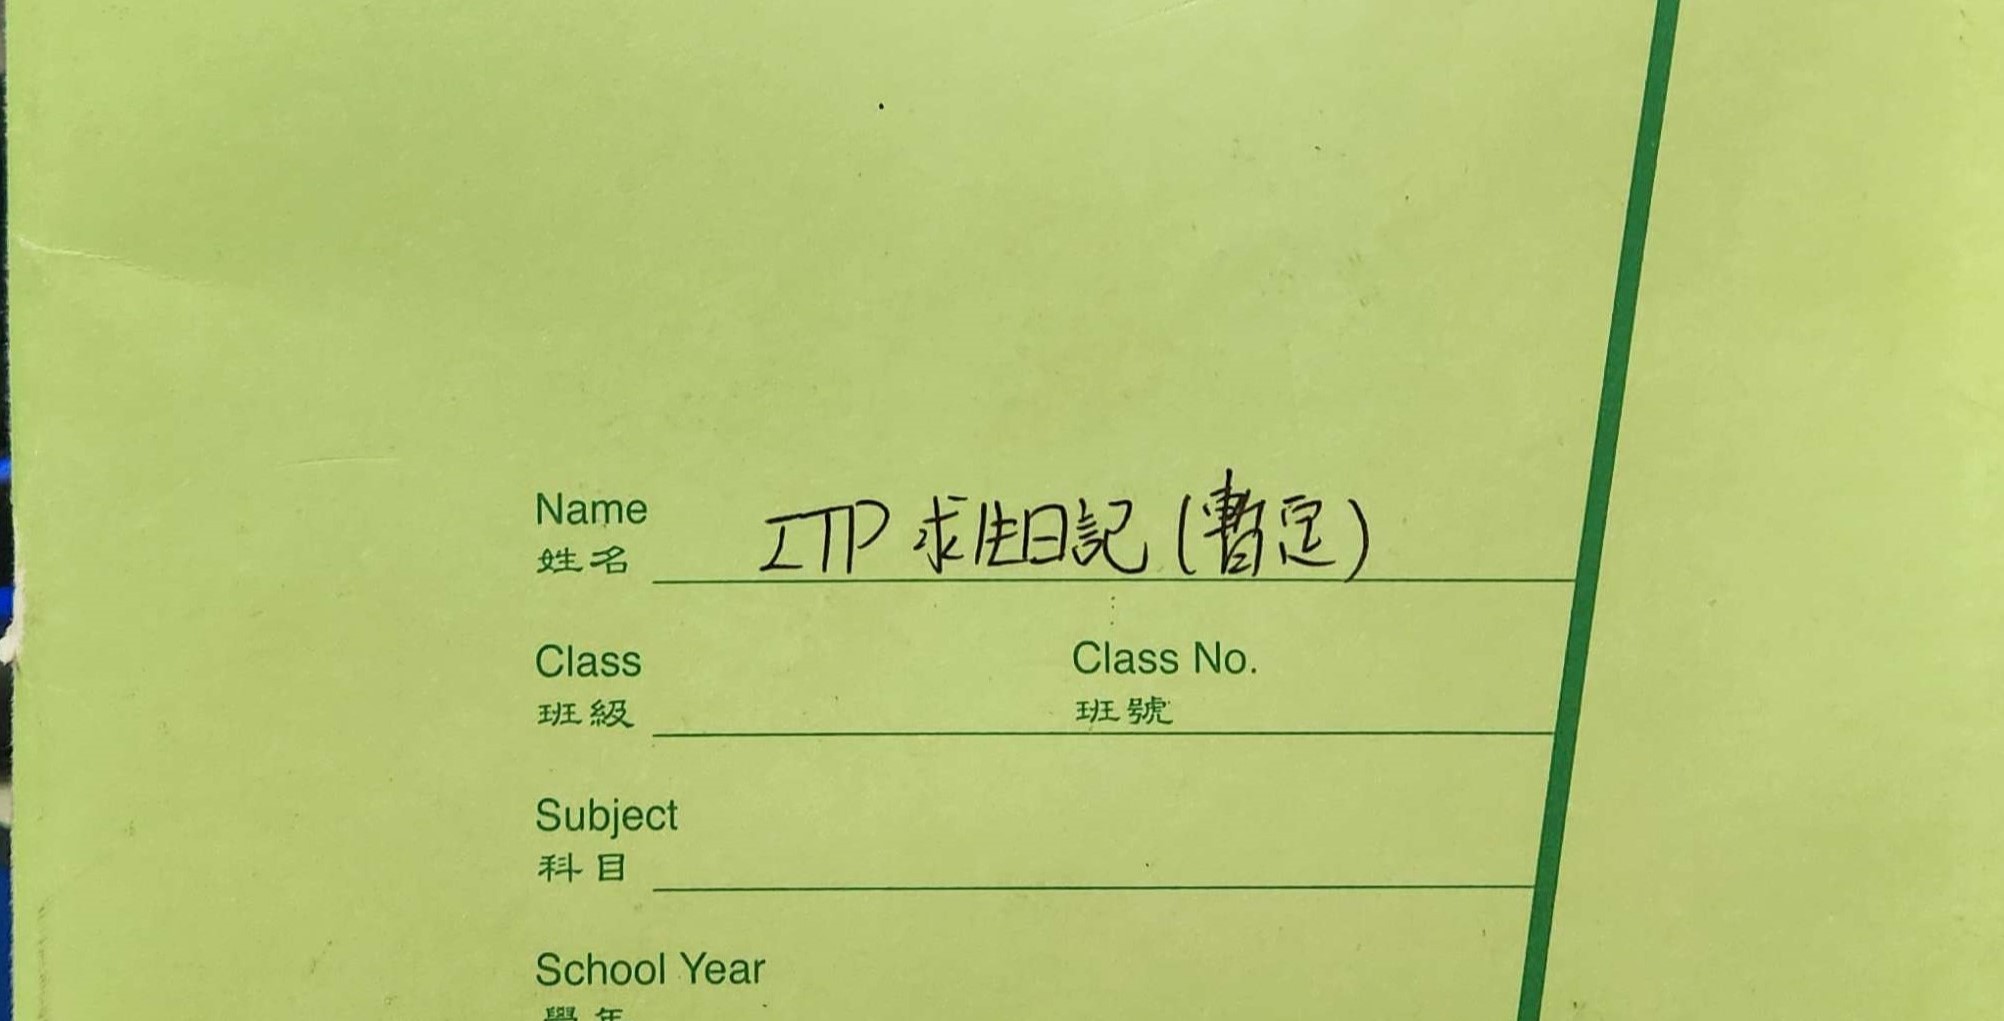 Name
姓名 ITP 求生日記(暫定)
Class Class No.
班級 班號
Subject
科目
School Year
學年